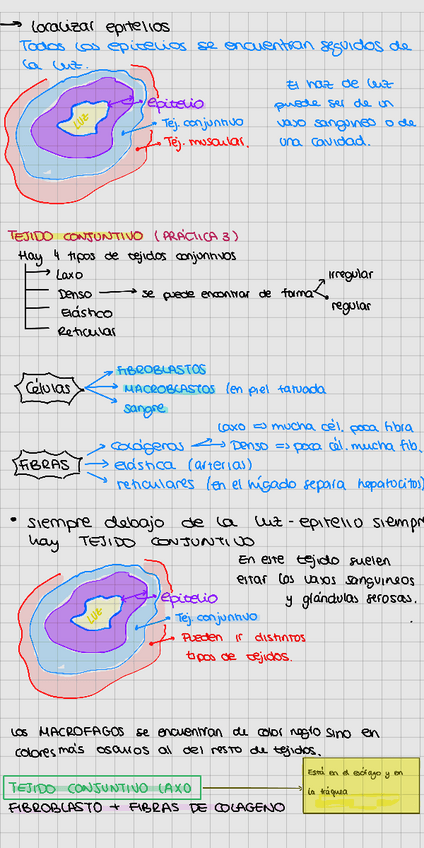 → Localizar epitelios
Todos los epitelios se encuentran seguidos de
la luz.
LUZ
epitelio
Tej. conjuntivo
Tej. muscular.
El haz de luz
puede ser de un
vaso sanguíneo o de
una cavidad.
TEJIDO CONJUNTIVO (PRÁCTICA 3)
Hay 4 tipos de tejidos conjuntivos
Laxo
Denso → se puede encontrar de forma
irregular
regular
Elástico
Reticular
Células
FIBROBLASTOS
MACROBLASTOS (en piel tatuada
sangre
FIBRAS
colágenos
Laxo => mucha cél. poca fibra
Denso => poca cél. mucha fib.
elástica (arterias)
reticulares (en el hígado separa hepatocitos)
• siempre debajo de la luz - epitelio siempre
hay TEJIDO CONJUNTIVO
En este tejido suelen
estar los vasos sanguineos
y glándulas serosas.
LUZ
epitelio
Tej. conjuntivo
Pueden ir distintos
tipos de tejidos.
Los MACROFAGOS se encuentran de color negro sino en
colores más oscuros al del resto de tejidos.
TEJIDO CONJUNTIVO LAXO
Está en el esófago y en
la tráquea
FIBROBLASTO + FIBRAS DE COLAGENO